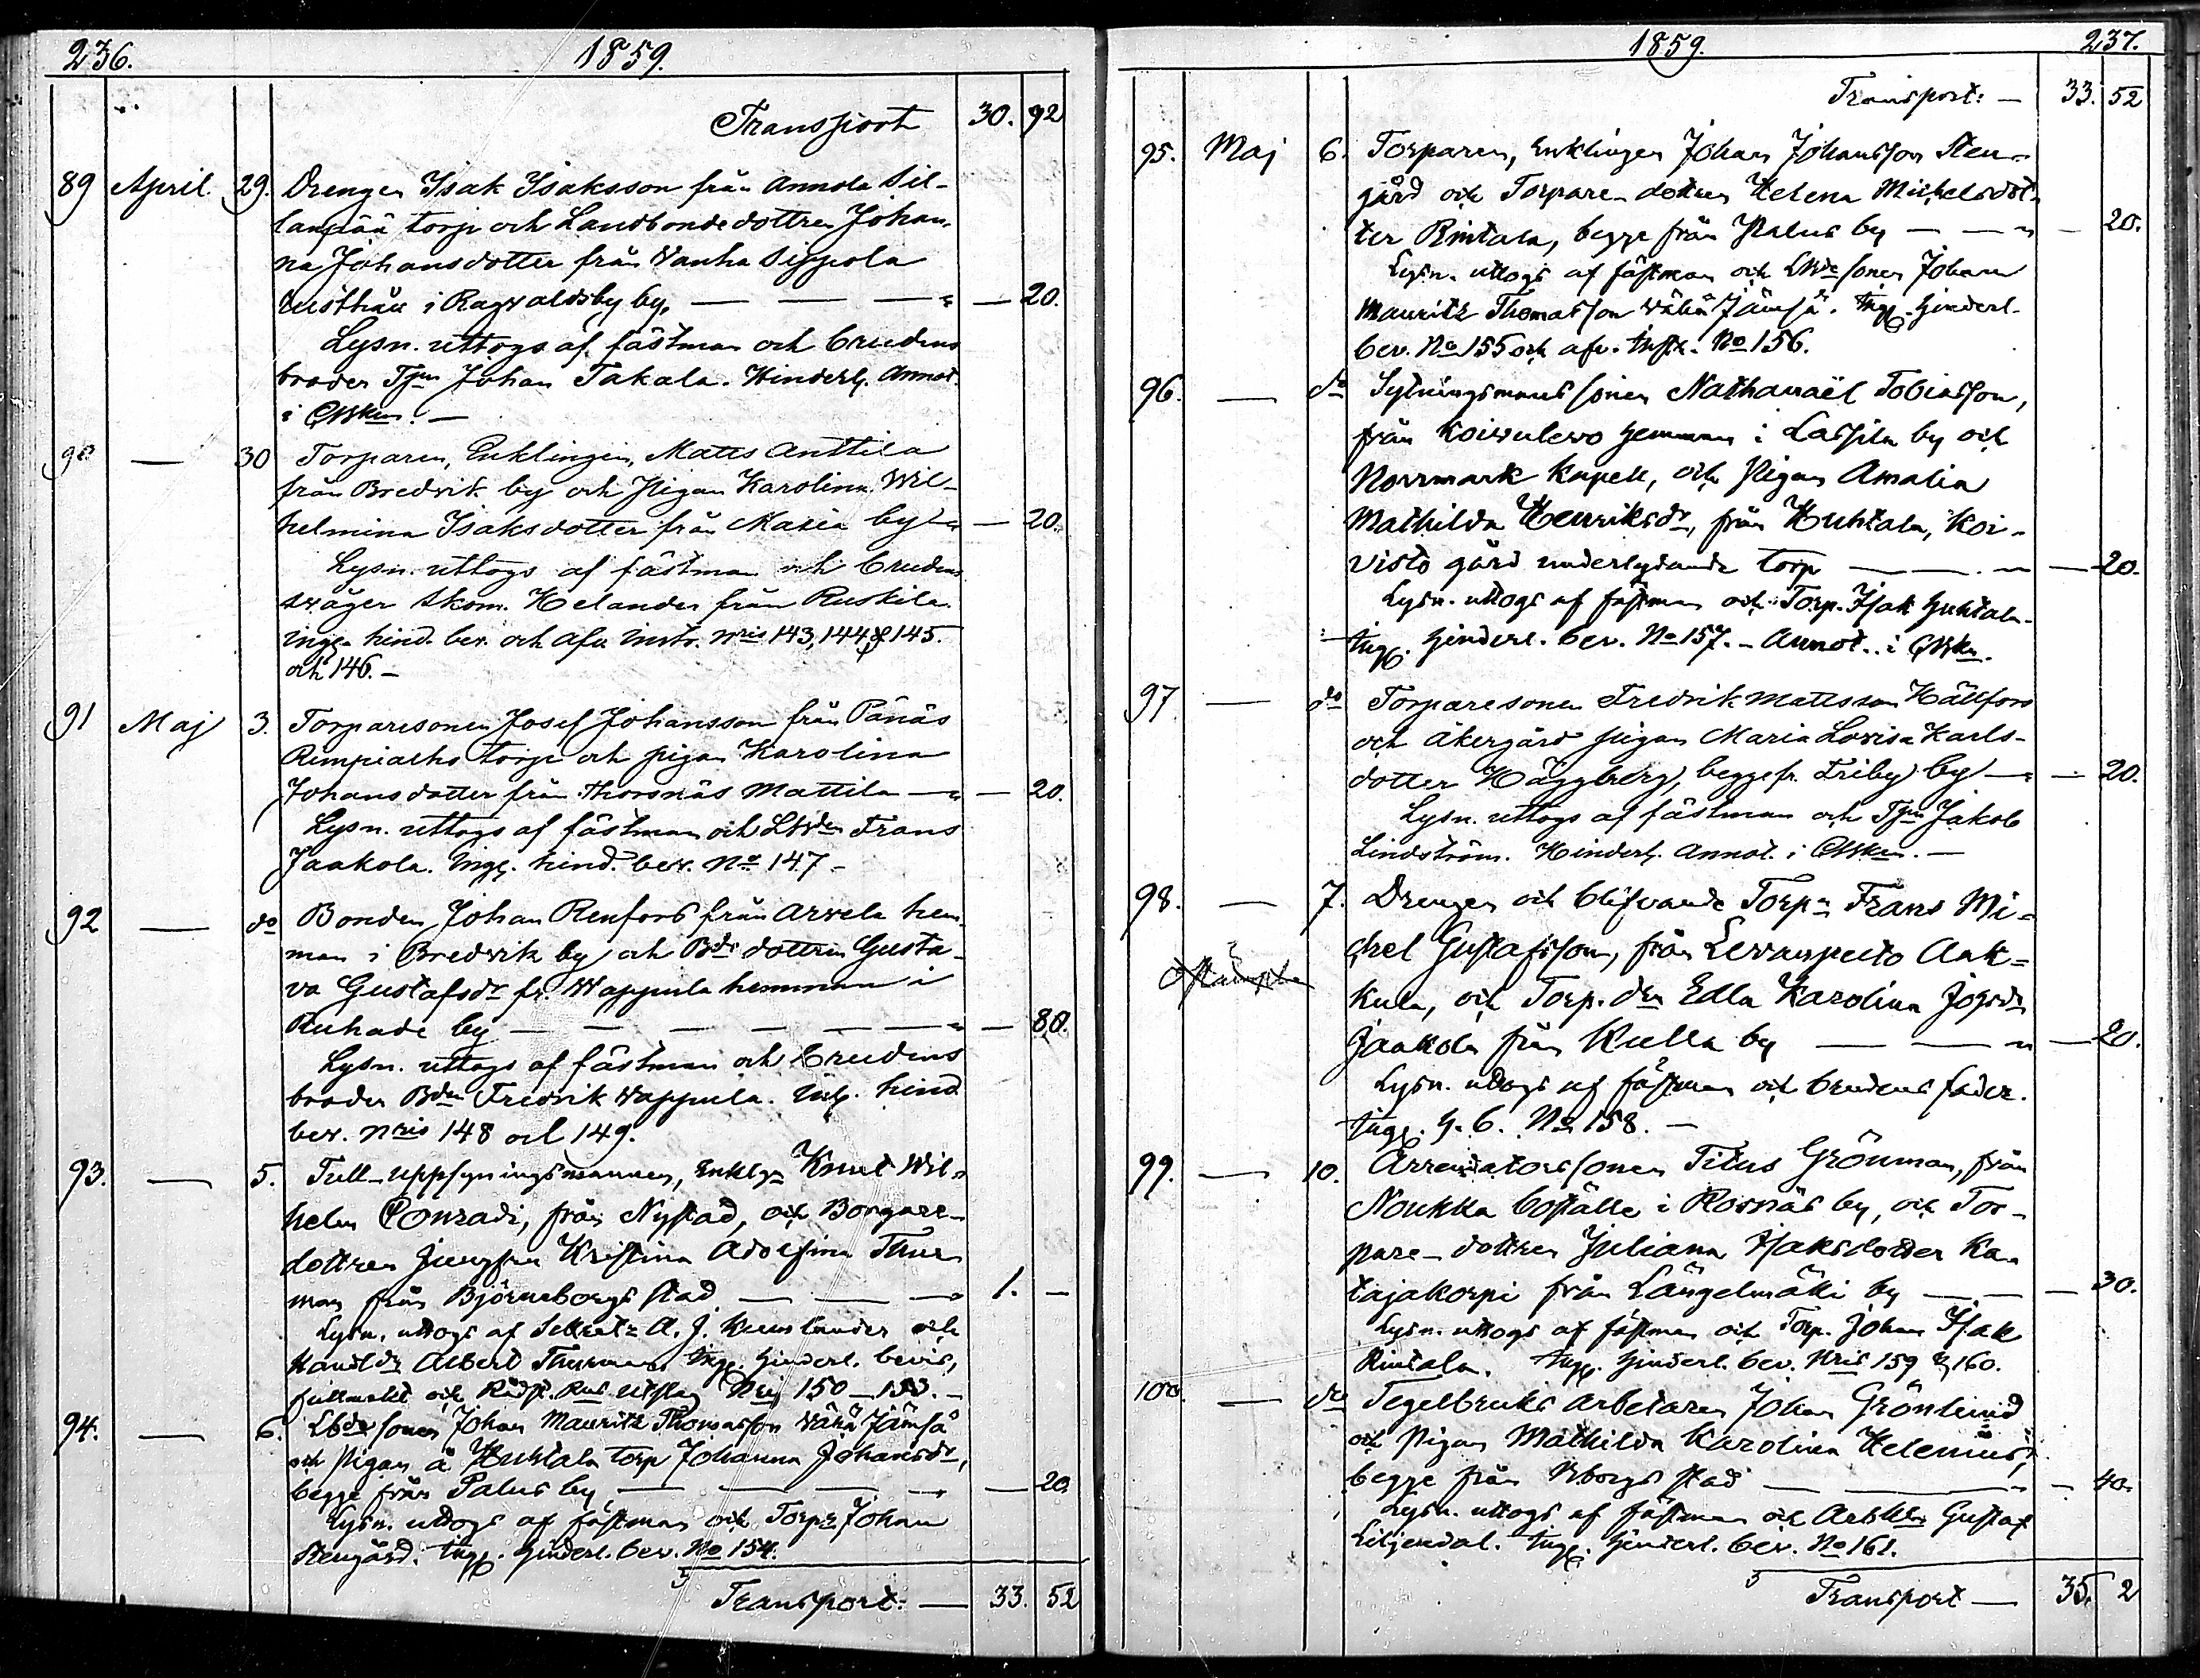 236. 1859.
Transport 30. 92
89 April. 29. Drengen Isak Isaksson från Annola Sil-
lanpää torp och Landbondedottren Johan-
na Johansdotter från Wanha Sippola
rusthåll i Ragvaldsby by. — — — " — 20.
Lysn. uttogs af fästman och brudens
broder Tjen Johan Takala. Hinderl. Annot.
i QWken. —
90 — 30 Torparen, Enklingen, Matts Anttila
från Bredvik by och Pigan Karolina Wil-
helmina Isaksdotter från Masia by — " — 20.
Lysn. uttogs af fästman och brudens
svåger Skom. Helander från Ruskila.
Ingg. hind. bev. och afv. instr. Nris 143, 144, & 145.
och 146. —
91 Maj 3. Torparesonen Josef Johansson från Pånäs
Rempialho torp och pigan Karolina
Johansdotter från Thorsnäs Mattila — " — 20.
Lysn. uttogs af fästman och LWden Frans
Jaakola. Ingg. hind. bev. No 147 —
92 — do Bonden Johan Renfors från Arvela hem-
man i Bredvik by och Bde dottren Gusta-
va Gustafsdr fr. Wappula hemman i
Ruhade by — — — — — " — 80.
Lysn. uttogs af fästman och brudens
broder Bden Fredrik Wappula. Inlg. hind
bev. Nris 148 och 149.
93. — 5. Tull-uppsyningsmannen, Enklgn Knut Wil-
helm Conradi, från Nystad, och Borgare-
dottren Jungfru Kristina Adolfina Thur-
man från Björneborgs stad — — — " 1. —
Lysn. uttogs af Sekret. A. J. och
Handldn Albert Thurman. Ingg. Hinderl. bevis,
fullmakt och Rådst. Rus utslag Nris 150 — 153. —
94. — 6. Lbdesonen Johan Mauritz Thomasson Wähä Jämsä
och Pigan å Huhtala torp Johanna Johansdr,
begge från Palus by — — — " — 20.
Lysn. uttogs af fästman och Torpn Johan
Stengård. Ingg. Hinderl. bev. No 154.
Transport: — 33. 52
1859. 237.
Transport: — 33. 52
95. Maj 6. Torparen, Enklingen Johan Johansson Sten-
gård och Torpare-dottren Helena Michelsdot-
ter Rintala, begge från Palus by — — " — 20.
Lysn. uttogs af fästman och LWdesonen Johan
Mauritz Thomasson Wähä Jämsä. Ingg. Hinderl.
bev. No 155 och afv. Instr. No 156.
96. — do Sytningsmanssonen Nathanaël Tobiasson,
från Koivulevo hemman i Lassila by och
Norrmark Kapell, och Pigan Amalia
Mathilda Henriksdr, från Huhtala, Koi-
visto gård underlydande torp — — " — 20.
Lysn. uttogs af fästman och Torp. Isak Huhtala.
Ingg. Hinderl. bev. No 157. — Annot. i QWkn.
97 — do Torparesonen Fredrik Mattsson Hällfors
och Åkergård pigan Maria Lovisa Karls-
dotter Häggberg, begge fr. Friby by — " — 20.
Lysn. uttogs af fästman och Tjen Jakob
Lindström. Hinderl. Annot. i QWken. —
98. — 7. Drengen och blifvande Torpn Frans Mi-
chel Gustafsson, från Levanpelto Aak-
kula, och Torp. dn Edla Karolina Johsdr
Jaakola från Kulla by — — " — 20.
Lysn. uttogs af fästman och brudens fader.
Ingg. H. b. No 158. —
99. — 10. Arrendatorssonen Titus Grönman, från
Noukka boställe i Rosnäs by, och Tor-
pare-dottren Juliana Isaksdotter Ka-
tajakorpi från Längelmäki by — — — 30.
Lysn. uttogs af fästman och Torp. Johan Isak
Rintala. Ingg. Hinderl. bev. Nris 159 & 160.
100. — do Tegelbruks Arbetaren Johan Grönlund
och Pigan Mathilda Karolina Helenius,
begge från Björneborgs stad — — " — 40.
Lysn. uttogs af fästman och Gustaf
Liljendal. Ingg. Hinderl. bev. No 161.
Transport — 35. 2